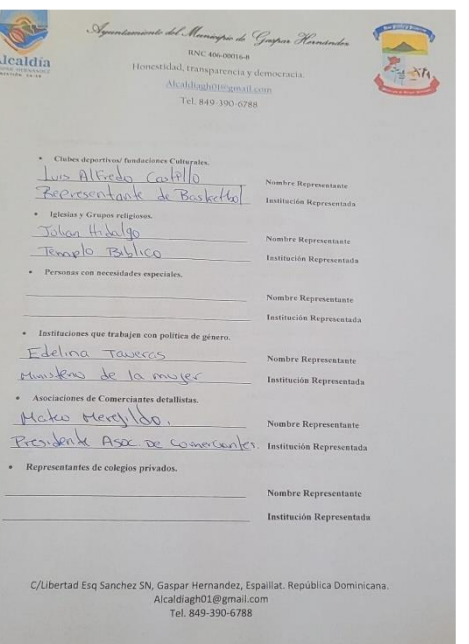 Ayuntamiento del Municipio de Gaspar Hernández
RNC 406-00016-8
Honestidad, transparencia y democracia.
Alcaldiagh01@gmail.com
Tel. 849-390-6788
Alcaldía
• Clubes deportivos/ fundaciones Culturales.
Luis Alfredo Castillo Nombre Representante
Representante de Basketbol Institución Representada
• Iglesias y Grupos religiosos.
Julian Hidalgo Nombre Representante
Templo Biblico Institución Representada
• Personas con necesidades especiales.
Nombre Representante
Institución Representada
• Instituciones que trabajen con política de género.
Edelina Taveras Nombre Representante
Ministerio de la mujer Institución Representada
• Asociaciones de Comerciantes detallistas.
Mateo Meregildo. Nombre Representante
Presidente Asoc De Comerciantes. Institución Representada
• Representantes de colegios privados.
Nombre Representante
Institución Representada
C/Libertad Esq Sanchez SN, Gaspar Hernandez, Espaillat. República Dominicana.
Alcaldiagh01@gmail.com
Tel. 849-390-6788